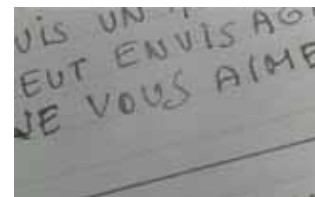 UIS UN
EUT ENVISAG
JE VOUS AIME